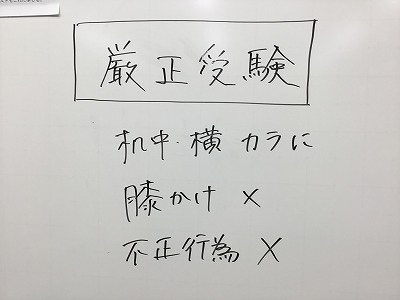 厳正受験
机中・横 カラに
膝かけ ×
不正行為 ×